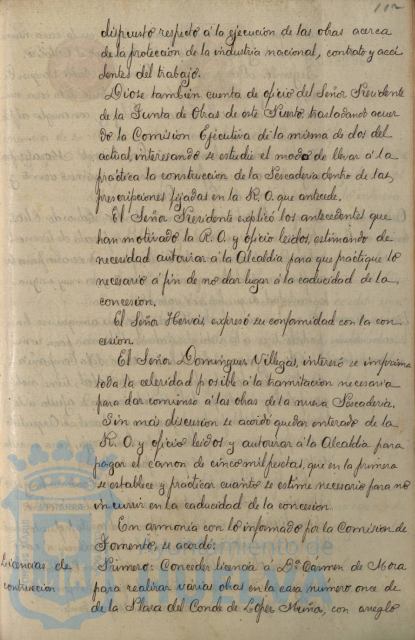 112
dispuesto respecto á la ejecucion de las obras acerca
de la proteccion de la industria nacional, contrato y acci
dentes del trabajo.
Diose también cuenta de oficio del Señor Presidente
de la Junta de Obras de este Puerto, trasladando acuer
do la Comision Ejecutiva de la misma de dos del
actual, interesando se estudie el modo de llevar á la
práctica la construccion de la Pescadería dentro de las
prescripciones fijadas en la R. O. que antecede.
El Señor Presidente explicó los antecedentes que
han motivado la R. O. y oficio leidos, estimando de
necesidad autorizar á la Alcaldía para que practique lo
necesario á fin de no dar lugar á la caducidad de la
concesion.
El Señor Hervás, expresó su conformidad con la con
cesion.
El Señor Dominguez Villegas, interesó se imprima
toda la celeridad posible á la tramitacion necesaria
para dar comienzo á las obras de la nueva Pescadería.
Sin mas discusion se acordó quedar enterado de la
R. O. y oficio leidos y autorizar á la Alcaldía para
pagar el canon de cinco mil pesetas, que en la primera
se establece y practicar cuanto se estime necesario para no
incurrir en la caducidad de la concesion.
En armonía con lo informado por la Comision de
Fomento, se acordó:
Licencias de
construccion
Primero: Conceder licencia á Dª Carmen de Mora
para realizar varias obras en la casa número once de
de la Plaza del Conde de López Muñoz, con arreglo
Ayuntamiento de